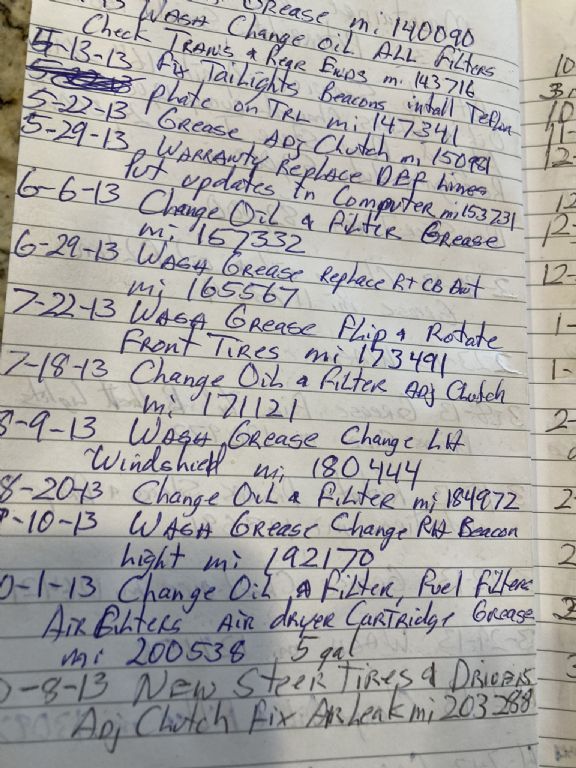 Grease mi 140090
WASH Change oil ALL Filters
Check TRANS & Rear Ends mi 143716
4-13-13 Fix TailLights Beacons intall Teflon
Plate on TRL mi 147341
5-22-13 Grease ADj Clutch mi
5-29-13 WARRANTY Replace DPF Lines
Put updates in Computer mi 153731
6-6-13 Change Oil & Filter Grease
mi 157332
6-29-13 WASH Grease Replace Rt CB Ant
mi 165567
7-22-13 WASH Grease Flip & Rotate
Front Tires mi 173491
7-18-13 Change Oil & Filter ADj Clutch
mi 171121
8-9-13 WASH Grease Change LH
Windshield mi 180444
8-20-13 Change Oil & Filter mi 184972
-10-13 WASH Grease Change RH Beacon
Light mi 192170
0-1-13 Change Oil & Filter, Fuel Filters
Air Filters Air dryer Cartridge Grease
mi 200538 5 gal
-8-13 NEW Steer Tires & Drivers
ADj Clutch Fix Air Leak mi 203288